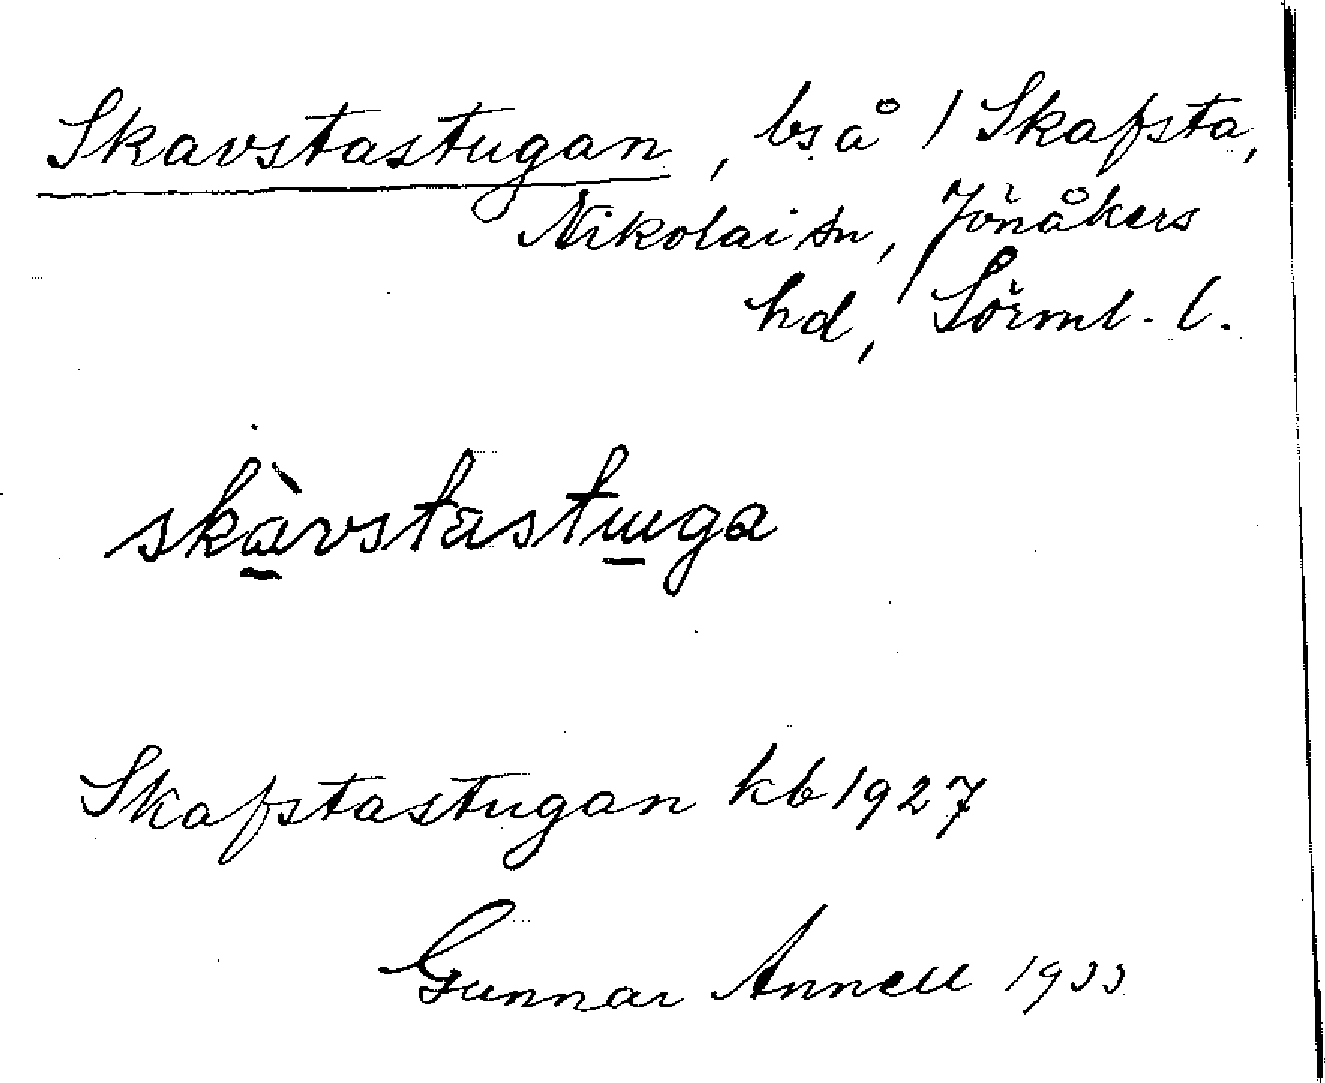 Skavstastugan, bs å 1 Skafsta,
Nikolai sn, Jönåkers
hd, Sörml. l.
skàvstastuga
Skafstastugan kb 1927
Gunnar Annell 1933